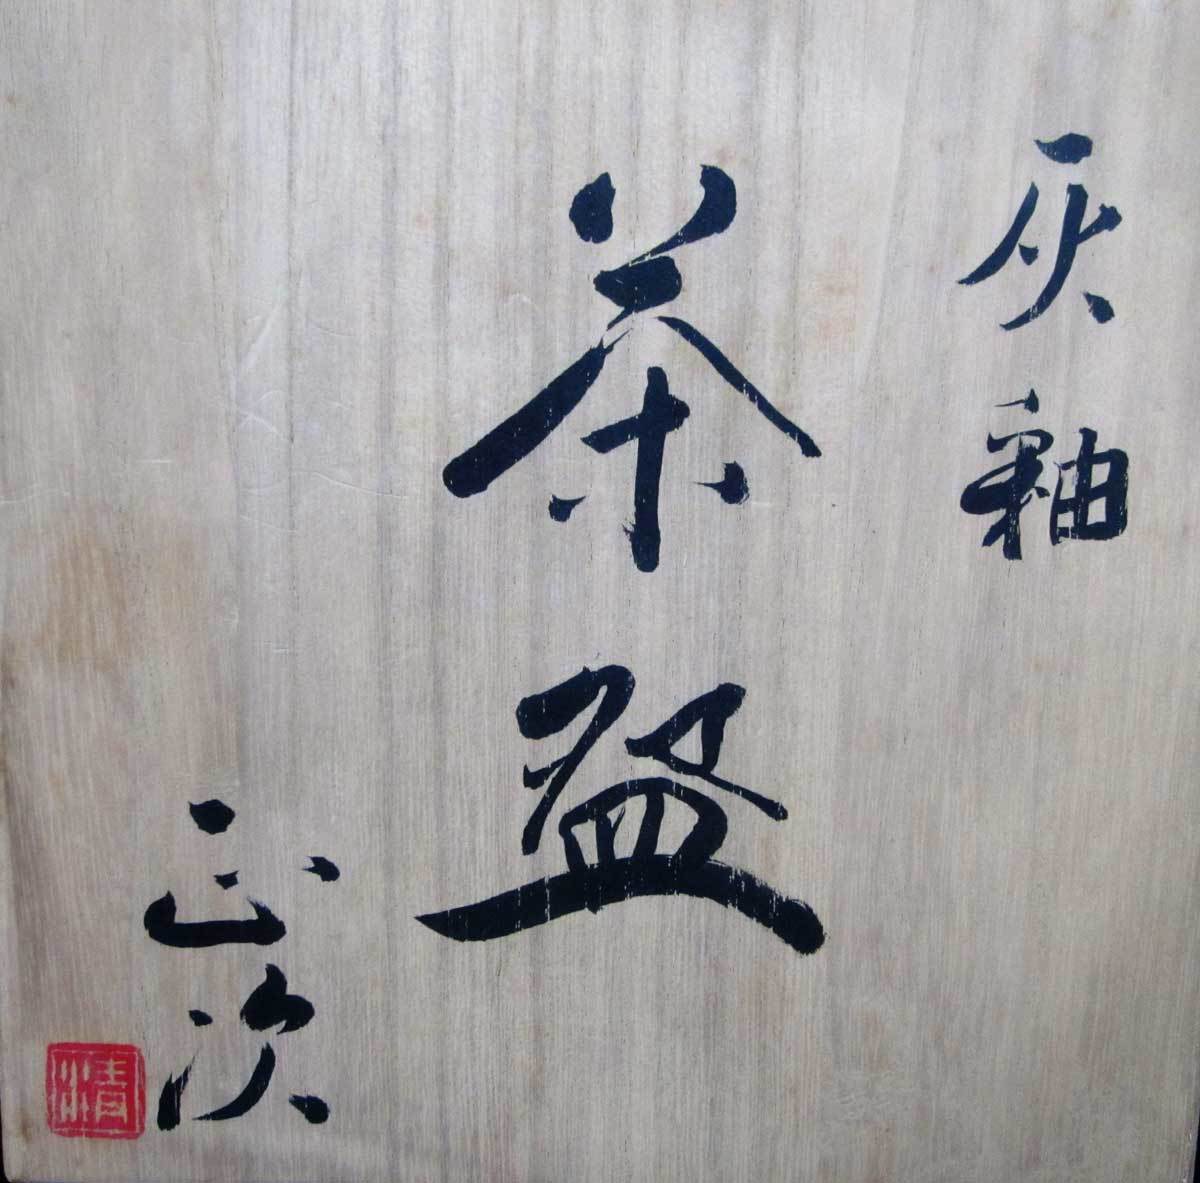 灰釉
茶盌
正次